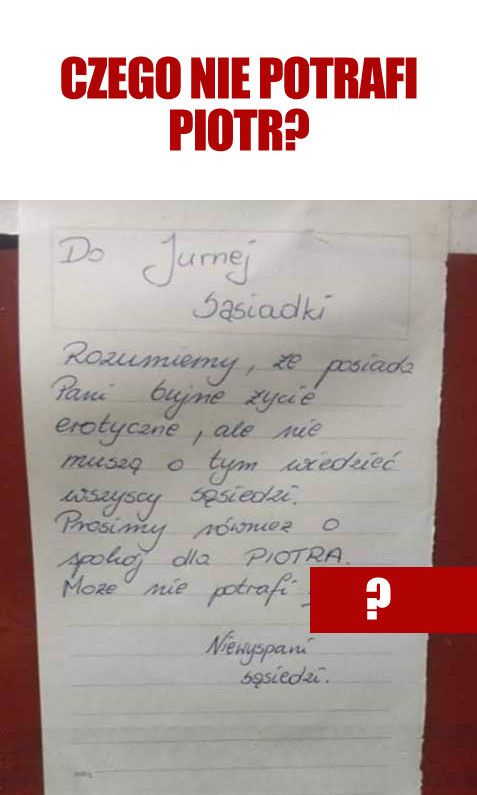 CZEGO NIE POTRAFI
PIOTR?
Do Jurnej
Sąsiadki
Rozumiemy, że posiada
Pani bujne życie
erotyczne, ale nie
muszą o tym wiedzieć
wszyscy sąsiedzi.
Prosimy również o
spokój dla PIOTRA.
Może nie potrafi
?
Niewyspani
sąsiedzi.